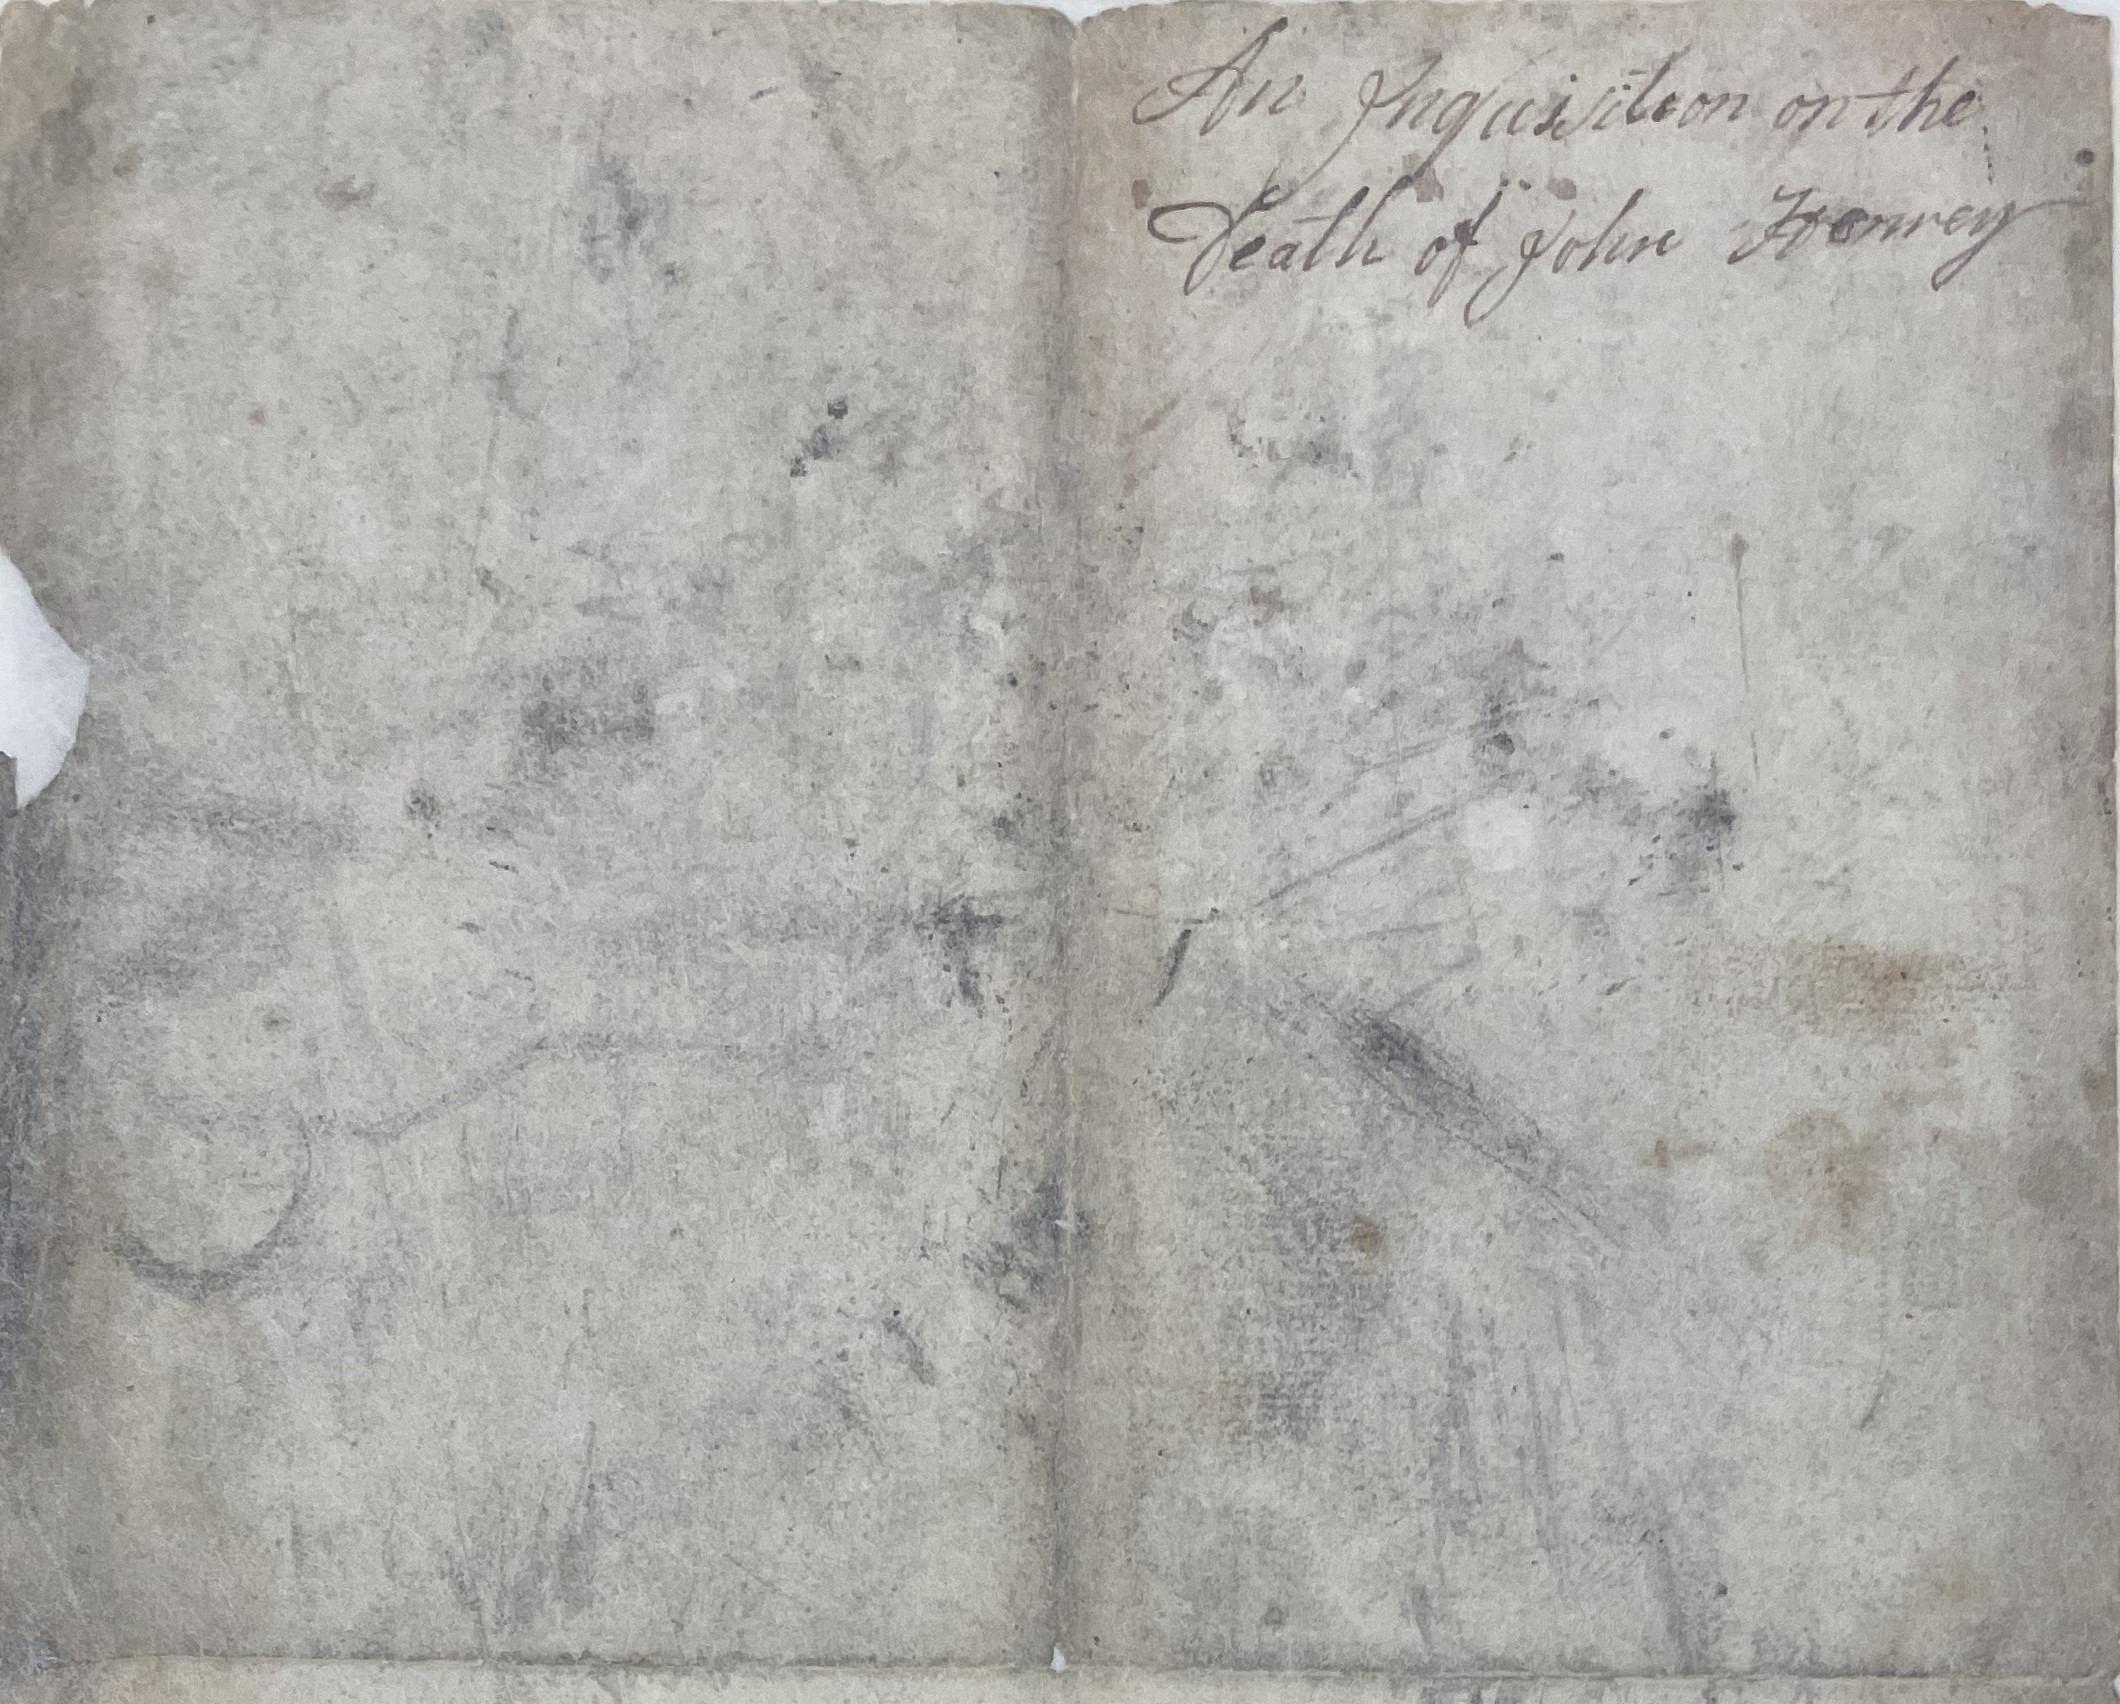 An Inquisition on the
Death of John Henrey